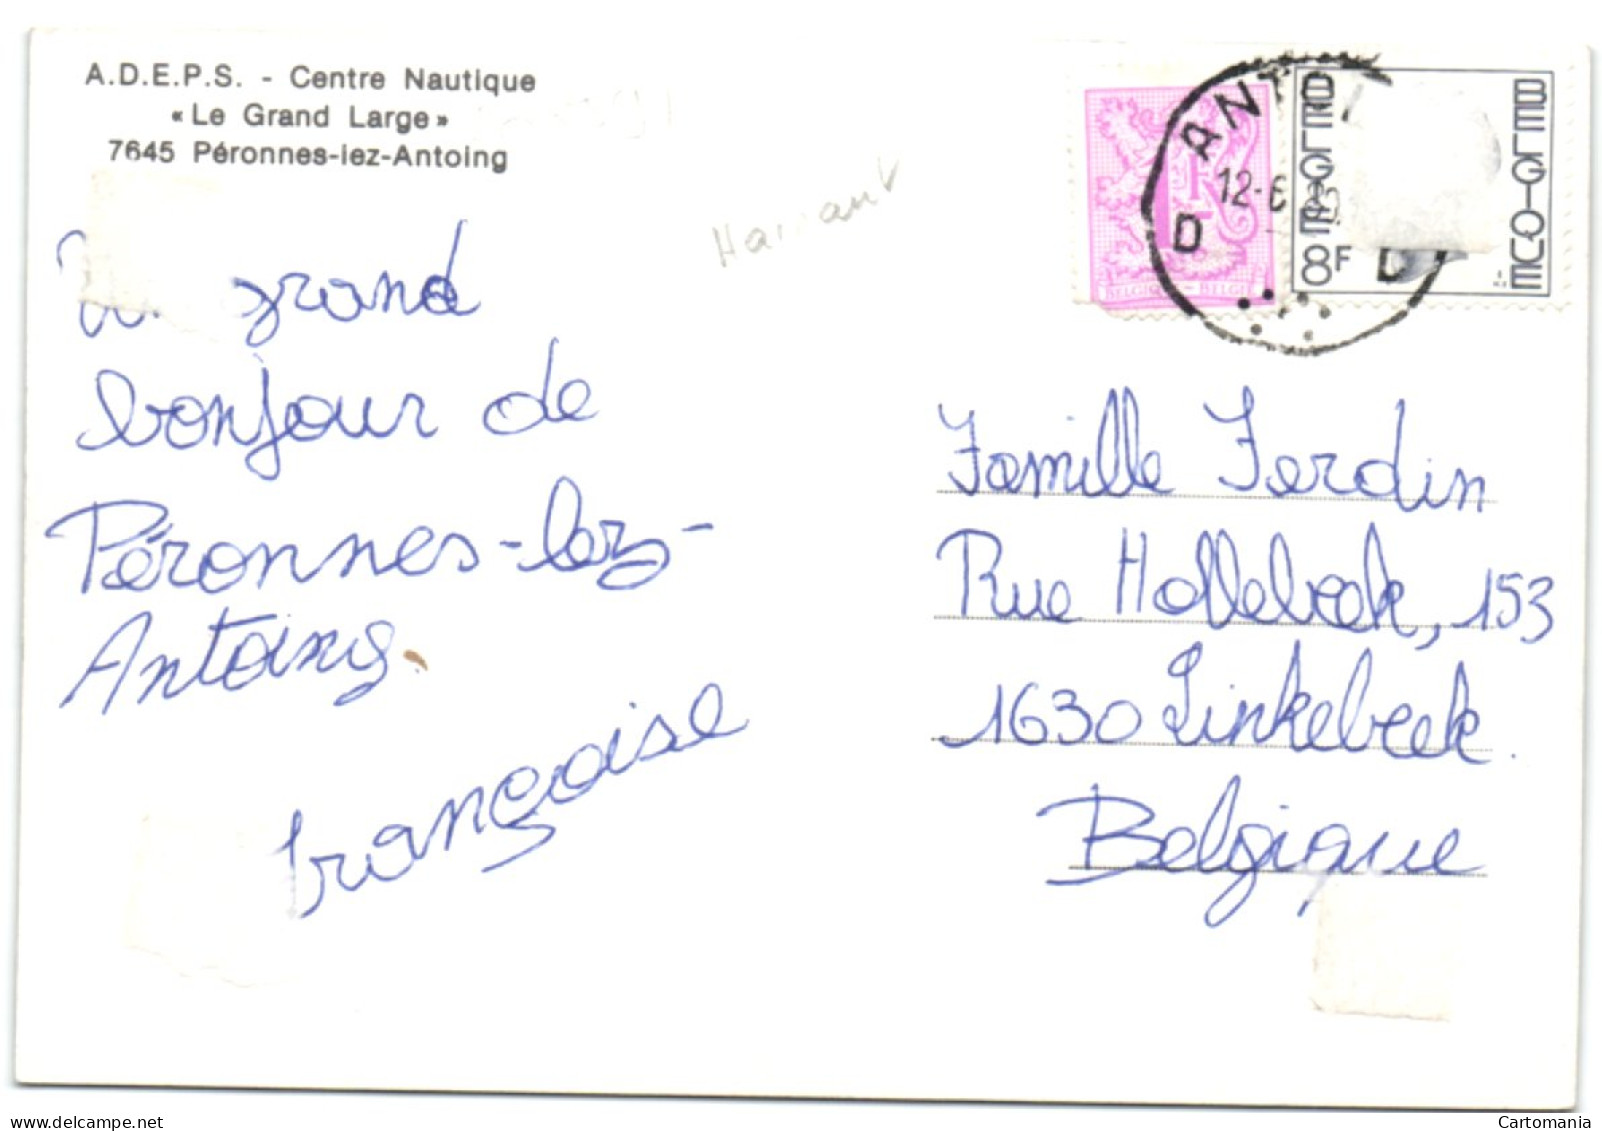 A.D.E.P.S. - Centre Nautique
« Le Grand Large »
7645 Péronnes-lez-Antoing
Hainaut
Un grand
bonjour de
Péronnes-lez-
Antoing.
françoise
BELGIE - BELGIË
ANTO
12-6
D D
BELGIE
8F
BELGIQUE
Famille Ferdin
Rue Hollebeek, 153
1630 Linkebeek.
Belgique
Cartomania
www.delcampe.net